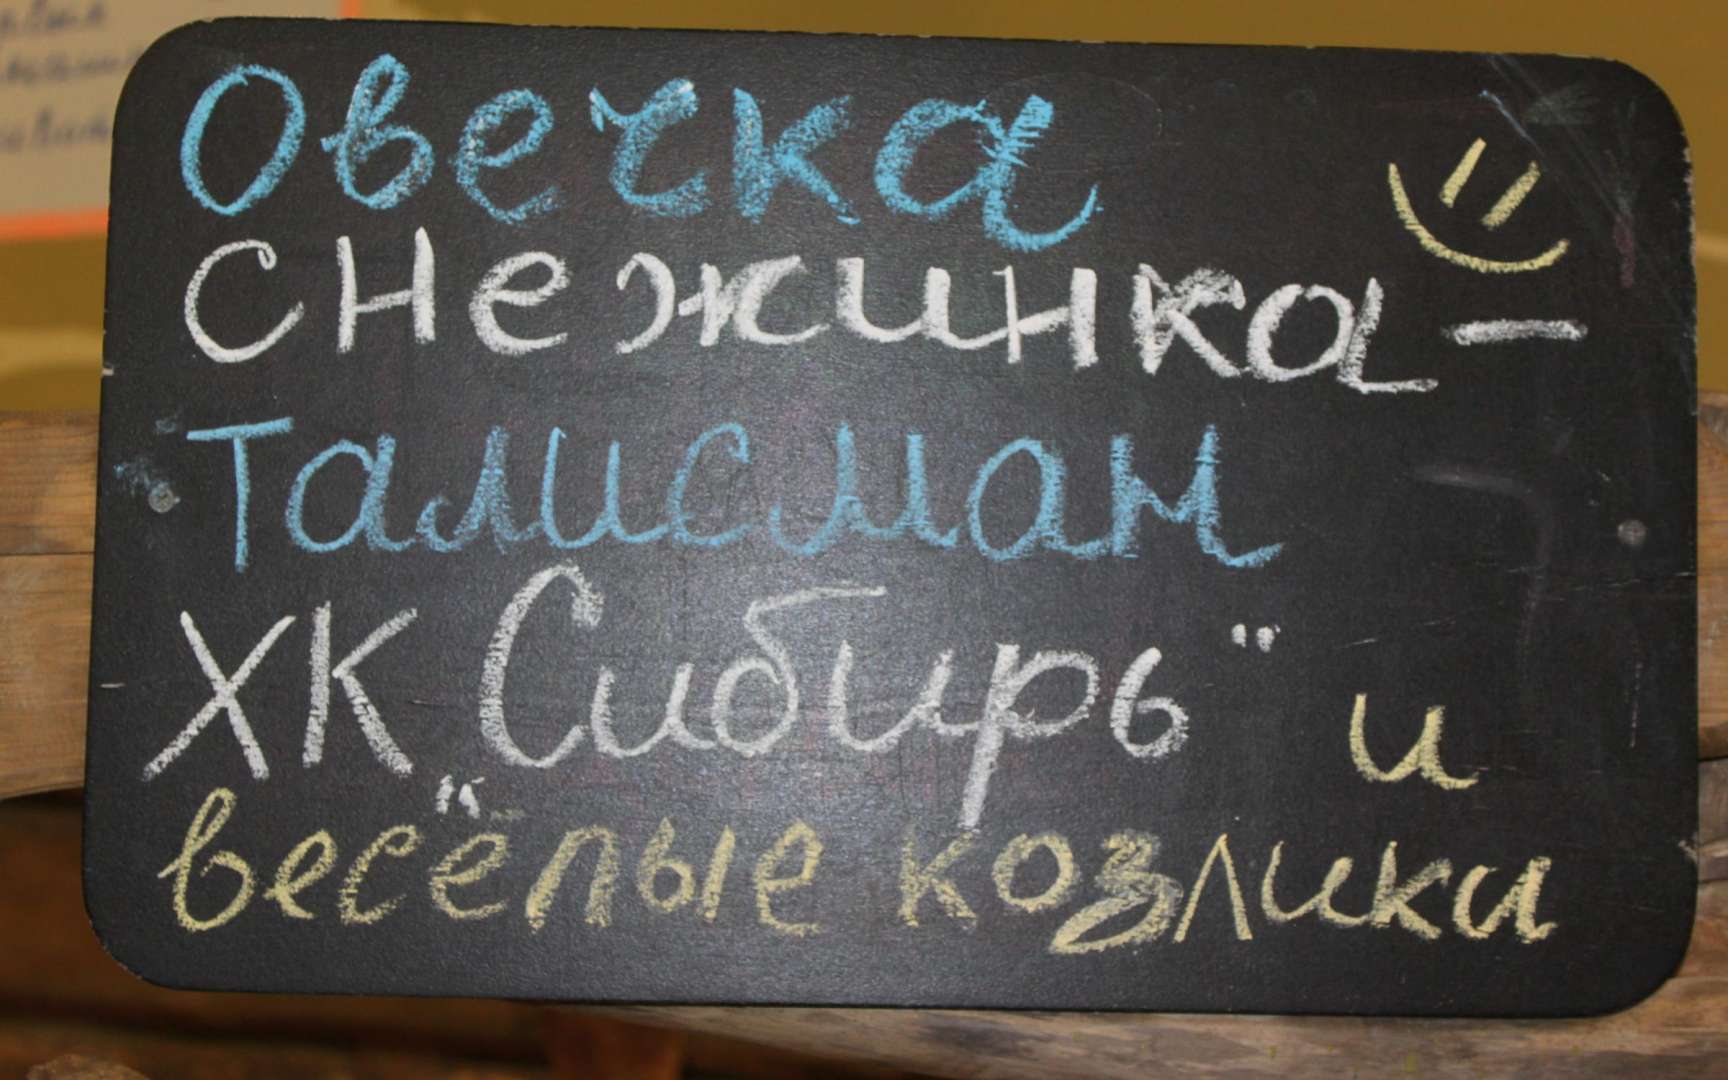 Овечка
снежинка -
Талисман
ХК „Сибирь" и
весёлые козлики